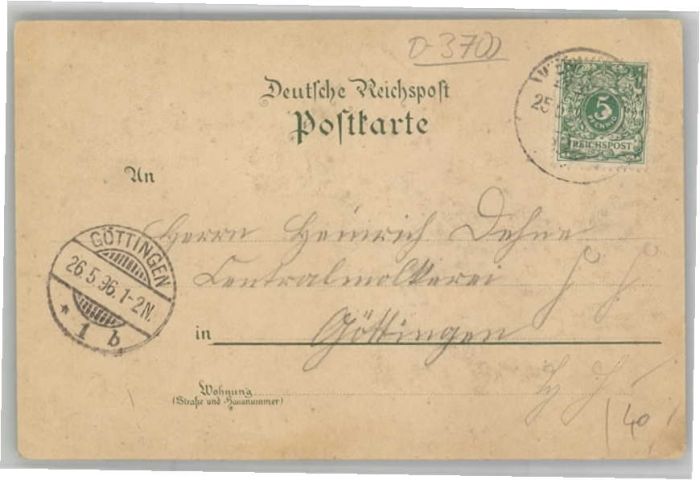 D-3700
Deutsche Reichspost
Postkarte
25
5
REICHSPOST
An
Herrn Heinrich Dehne
Centralmolkerei
in Göttingen
GÖTTINGEN
26.5.96.1-2N.
* 1 b
Wohnung
(Straße und Hausnummer)
40